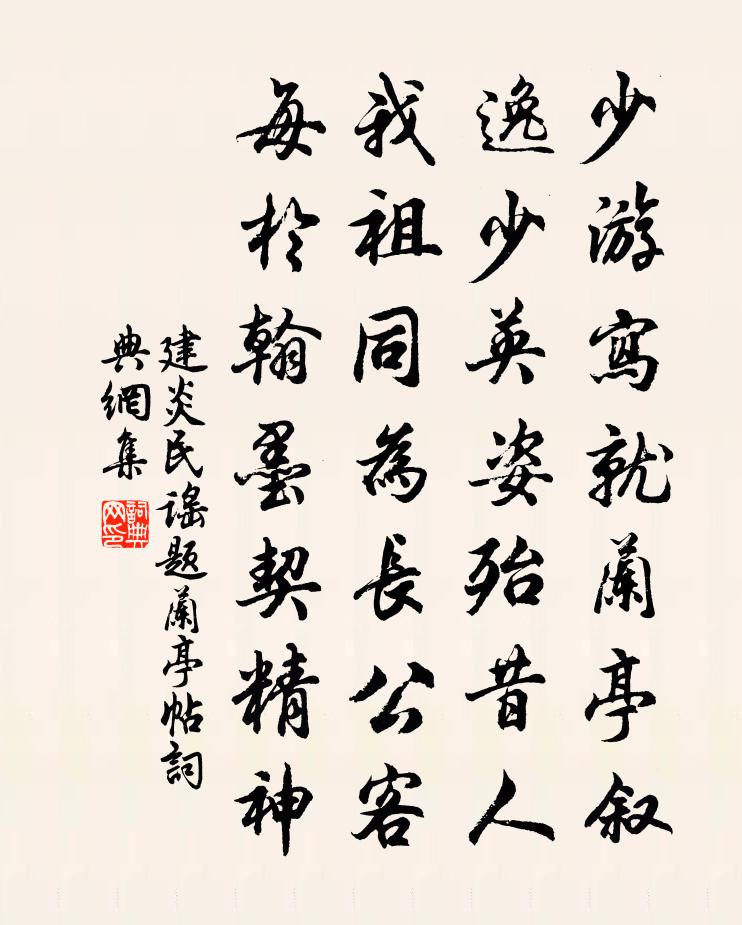 少游寫就蘭亭叙
逸少英姿殆昔人
我祖同為長公客
每於翰墨契精神
建炎民謠題蘭亭帖詞
典網集
詞典
网印